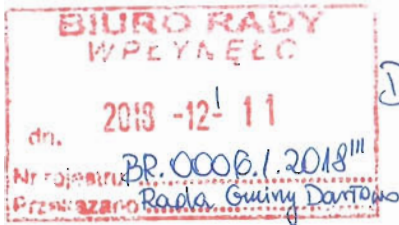 BIURO RADY
WPŁYNĘŁO
dn. 2018 -12- 11
Nr rejestru BR.0006.1.2018"'
Przekazano Rada Gminy Darłowo